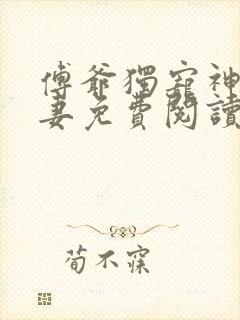 傅爺獨寵神
妻免費閱讀
荀不寐